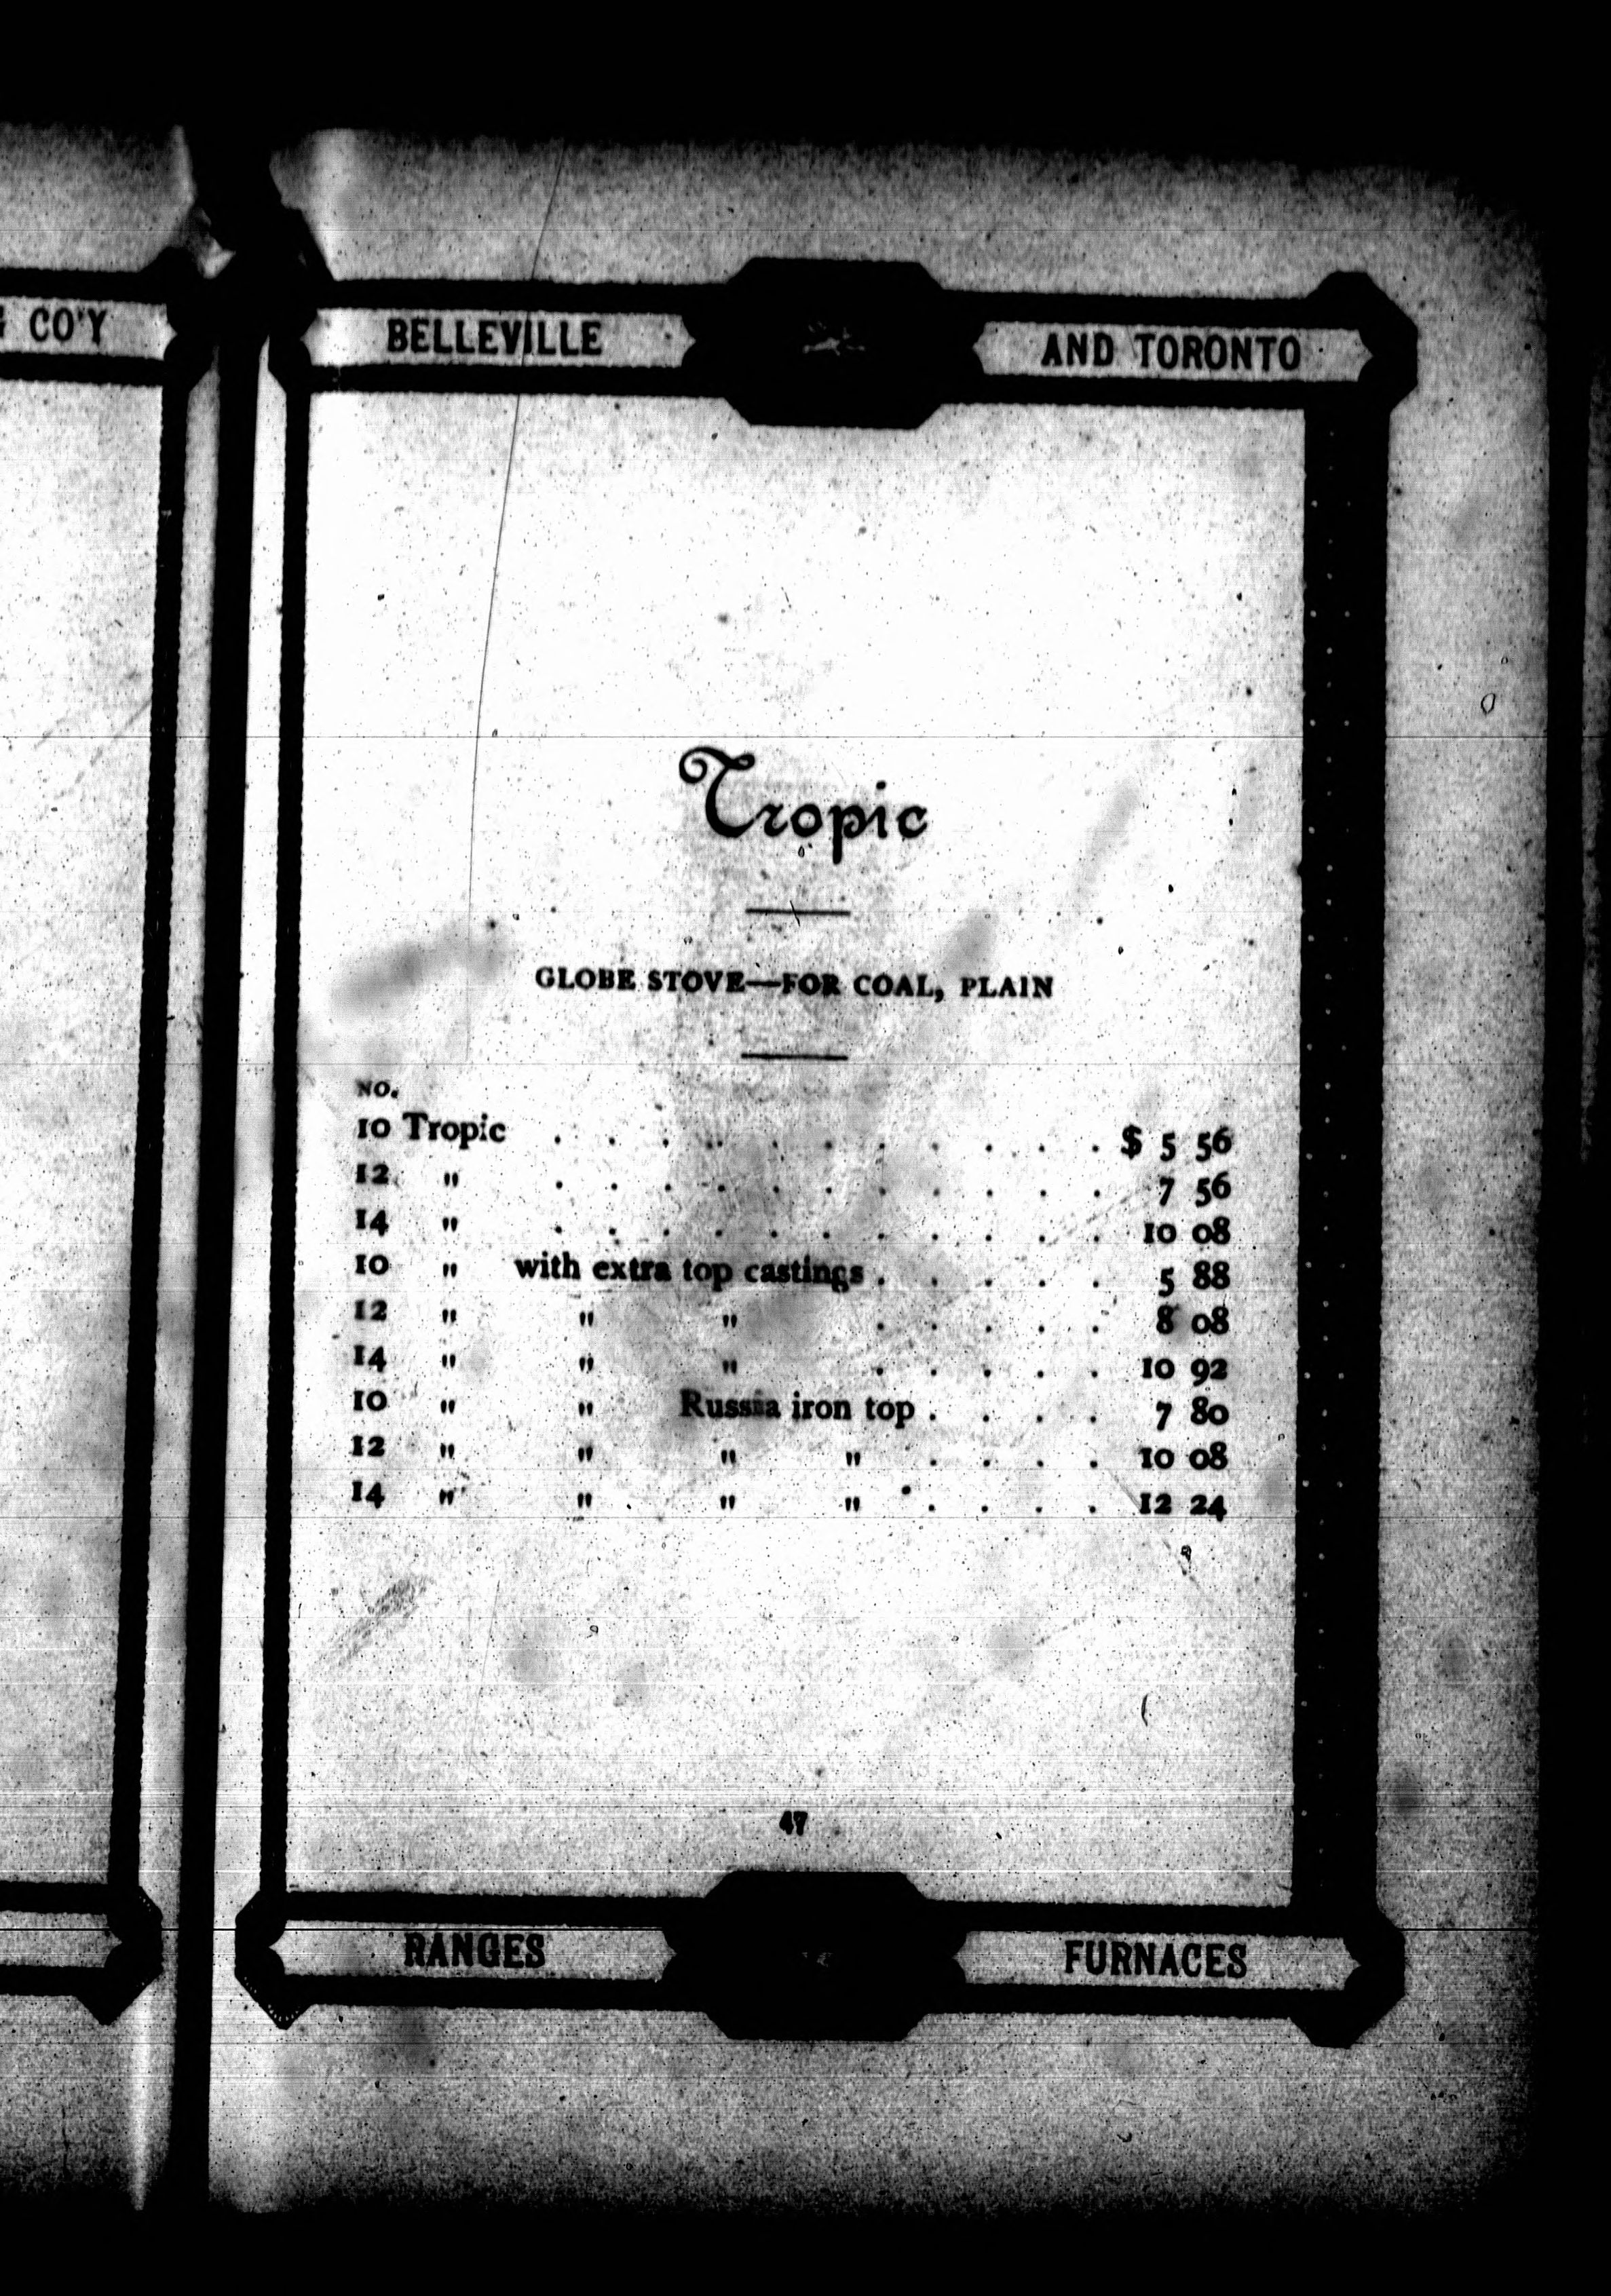 G CO'Y
BELLEVILLE AND TORONTO
Tropic
GLOBE STOVE—FOR COAL, PLAIN
NO.
10 Tropic . . . . . . . . . . . $ 5 56
12 " . . . . . . . . . . . 7 56
14 " . . . . . . . . . . . 10 08
10 " with extra top castings . . . . . 5 88
12 " " " . . . . . 8 08
14 " " " . . . . . 10 92
10 " " Russia iron top . . . . 7 80
12 " " " " . . . . 10 08
14 " " " " . . . . 12 24
47
RANGES FURNACES